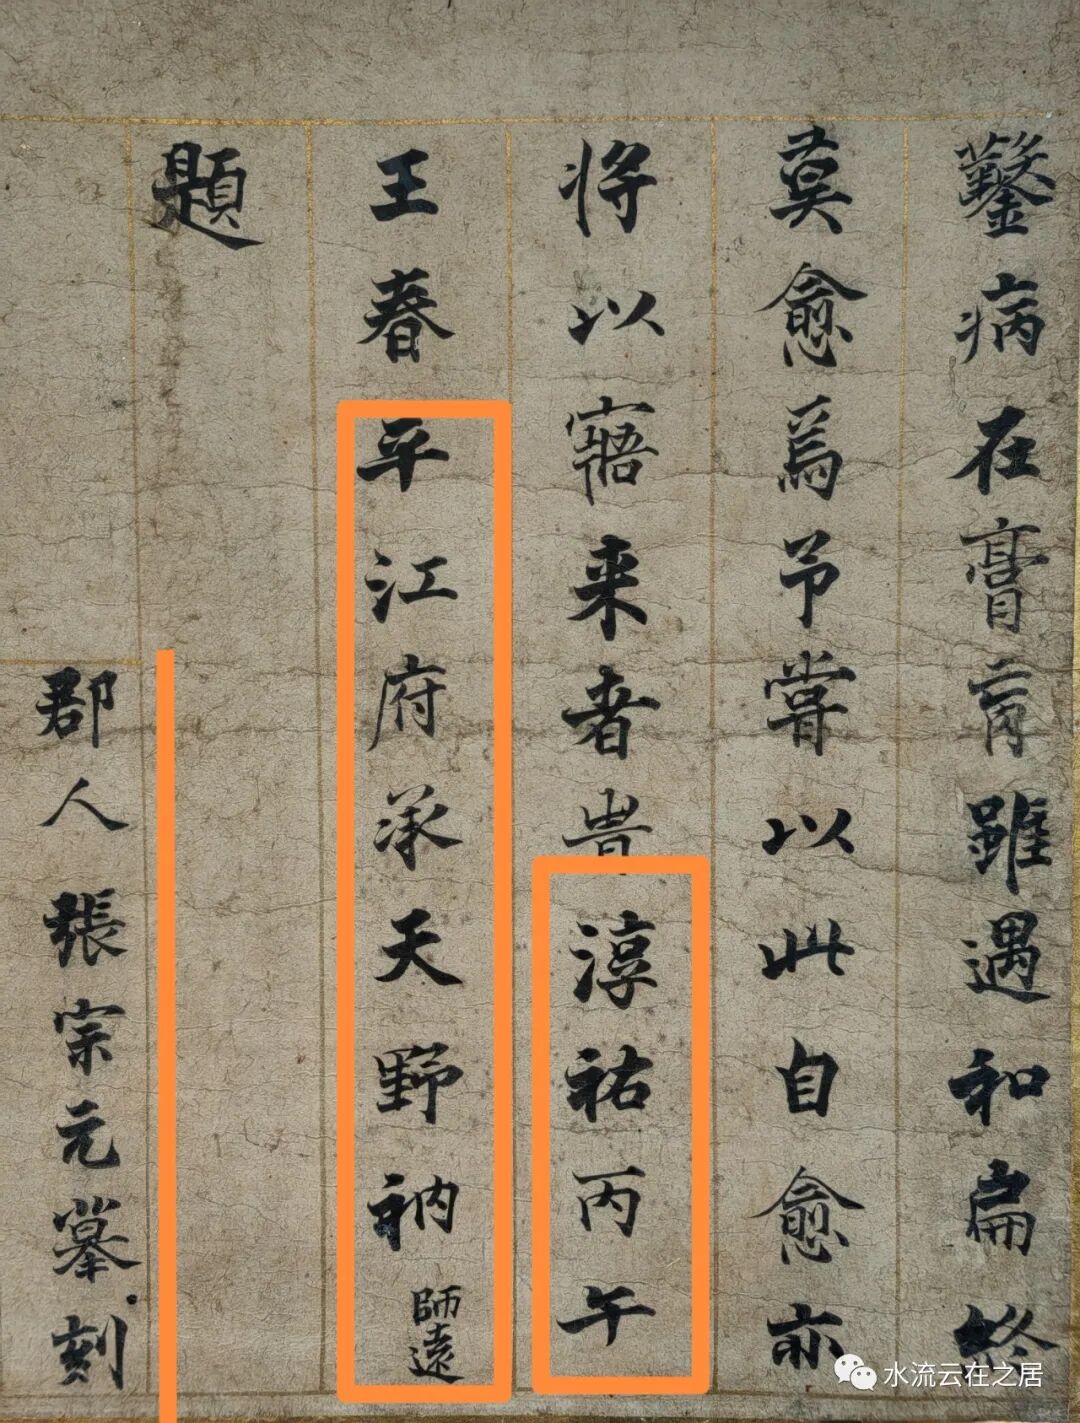 鑿病在膏肓雖遇和扁終
莫愈焉予嘗以此自愈亦
將以寤来者旹淳祐丙午
王春平江府承天野衲師遠
題
郡人張宗元摹刻
水流云在之居